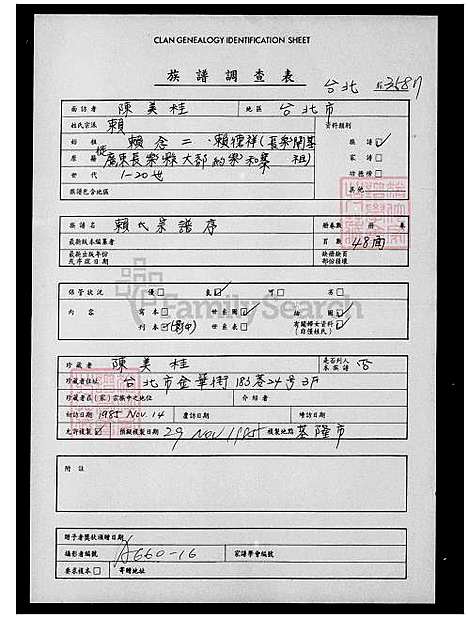 CLAN GENEALOGY IDENTIFICATION SHEET
族譜調查表
台北
面訪者 陳美桂 地區 台北市
姓氏宗派 賴 資料類別
始祖 賴念二、賴德祥(長樂開基祖) 族譜
原籍 廣東長樂縣大都約梁和 家譜
世代 1-20世
族譜包含地區 其他
族譜名 賴氏宗譜序 冊卷數 冊 卷
最新版本編纂者 頁數 48面
最新出版年份
保管狀況 優 良 可 劣
FamilySearch
內容 寫本 世系圖 插圖
刊本 (影印) 世系表 有關婦女資料
珍藏者 陳美桂 是否列入本族譜 否
珍藏者住址 台北市金華街183巷24號3F
珍藏者在(家)宗族中之地位 介紹者
初訪日期 1985 NOV. 14 覆訪日期 增訪日期
允許複製 預擬複製日期 29 NOV 1985 複製地點 基隆市
附註
贈予者獎狀頒贈日期
攝影者編號 A660-16 家譜學會編號
要求複本 寄贈地址